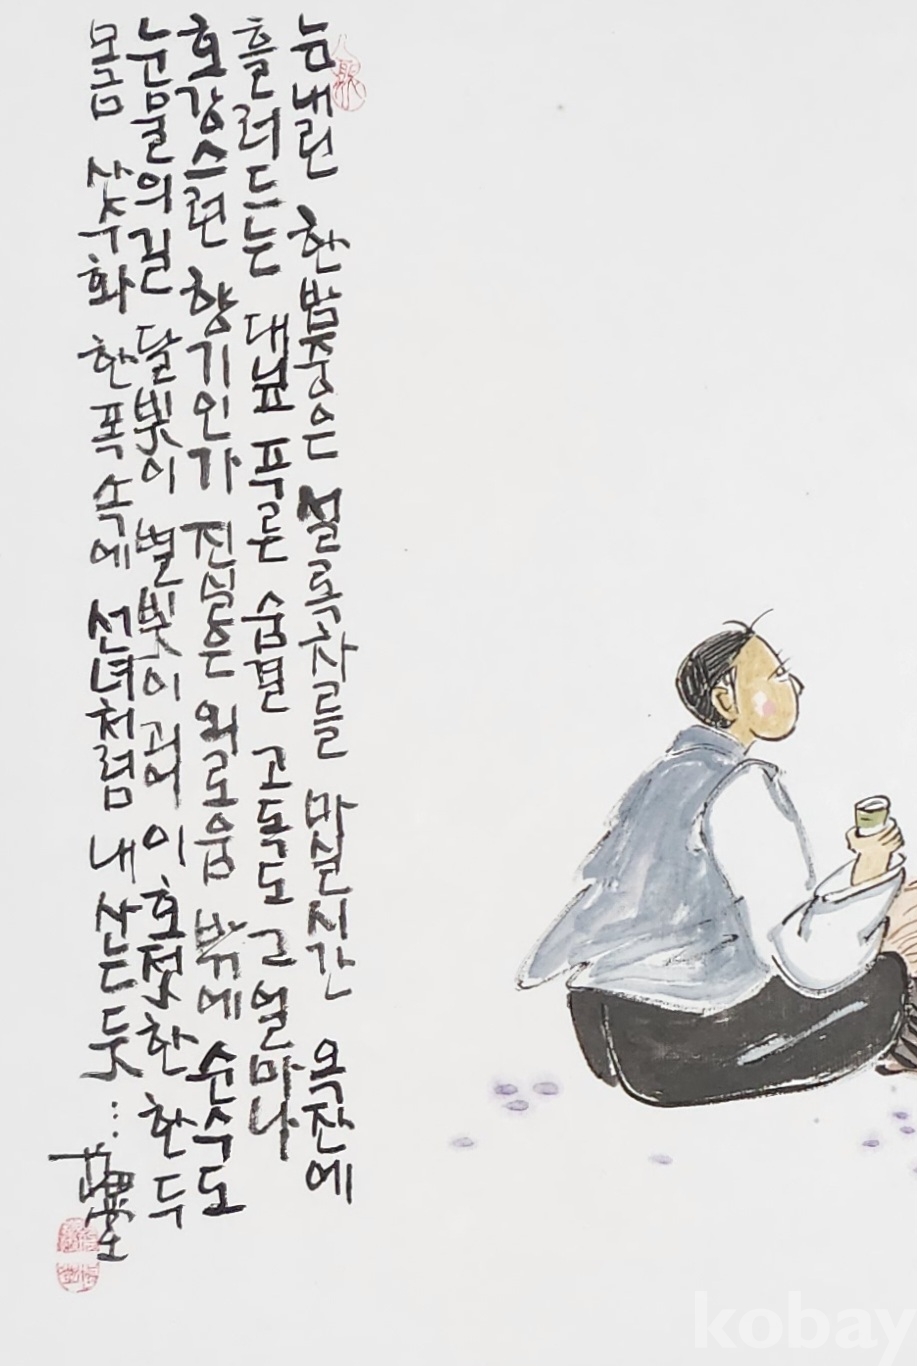 눈내린 한밤중은 설록차를 마실시간 옥잔에
흘러드는 대숲 푸른 숨결 고독도 그 얼마나
호강스런 향기인가 진실은 외로움 밖에 순수도
눈물의 길 달빛이 별빛이 괴어 이 호젓한 한두
모금 산수화 한폭 속에 선녀처럼 내 산는 듯 ...
kobay